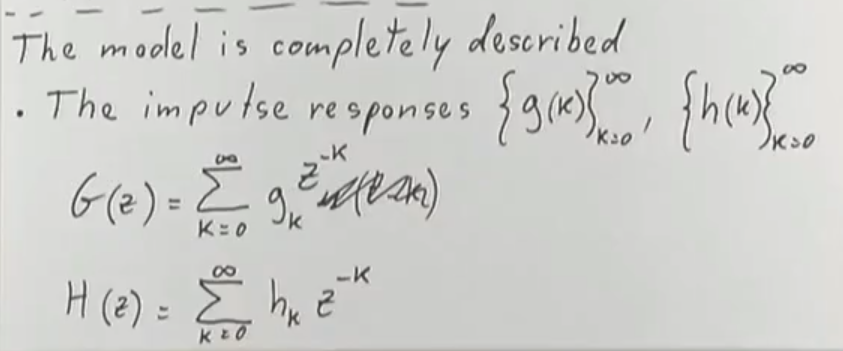 The model is completely described
. The impulse responses {g(k)}_{k=0}^{∞}, {h(k)}_{k=0}^{∞}
G(z) = ∑_{k=0}^{∞} g_k z^{-k}
H(z) = ∑_{k=0}^{∞} h_k z^{-k}